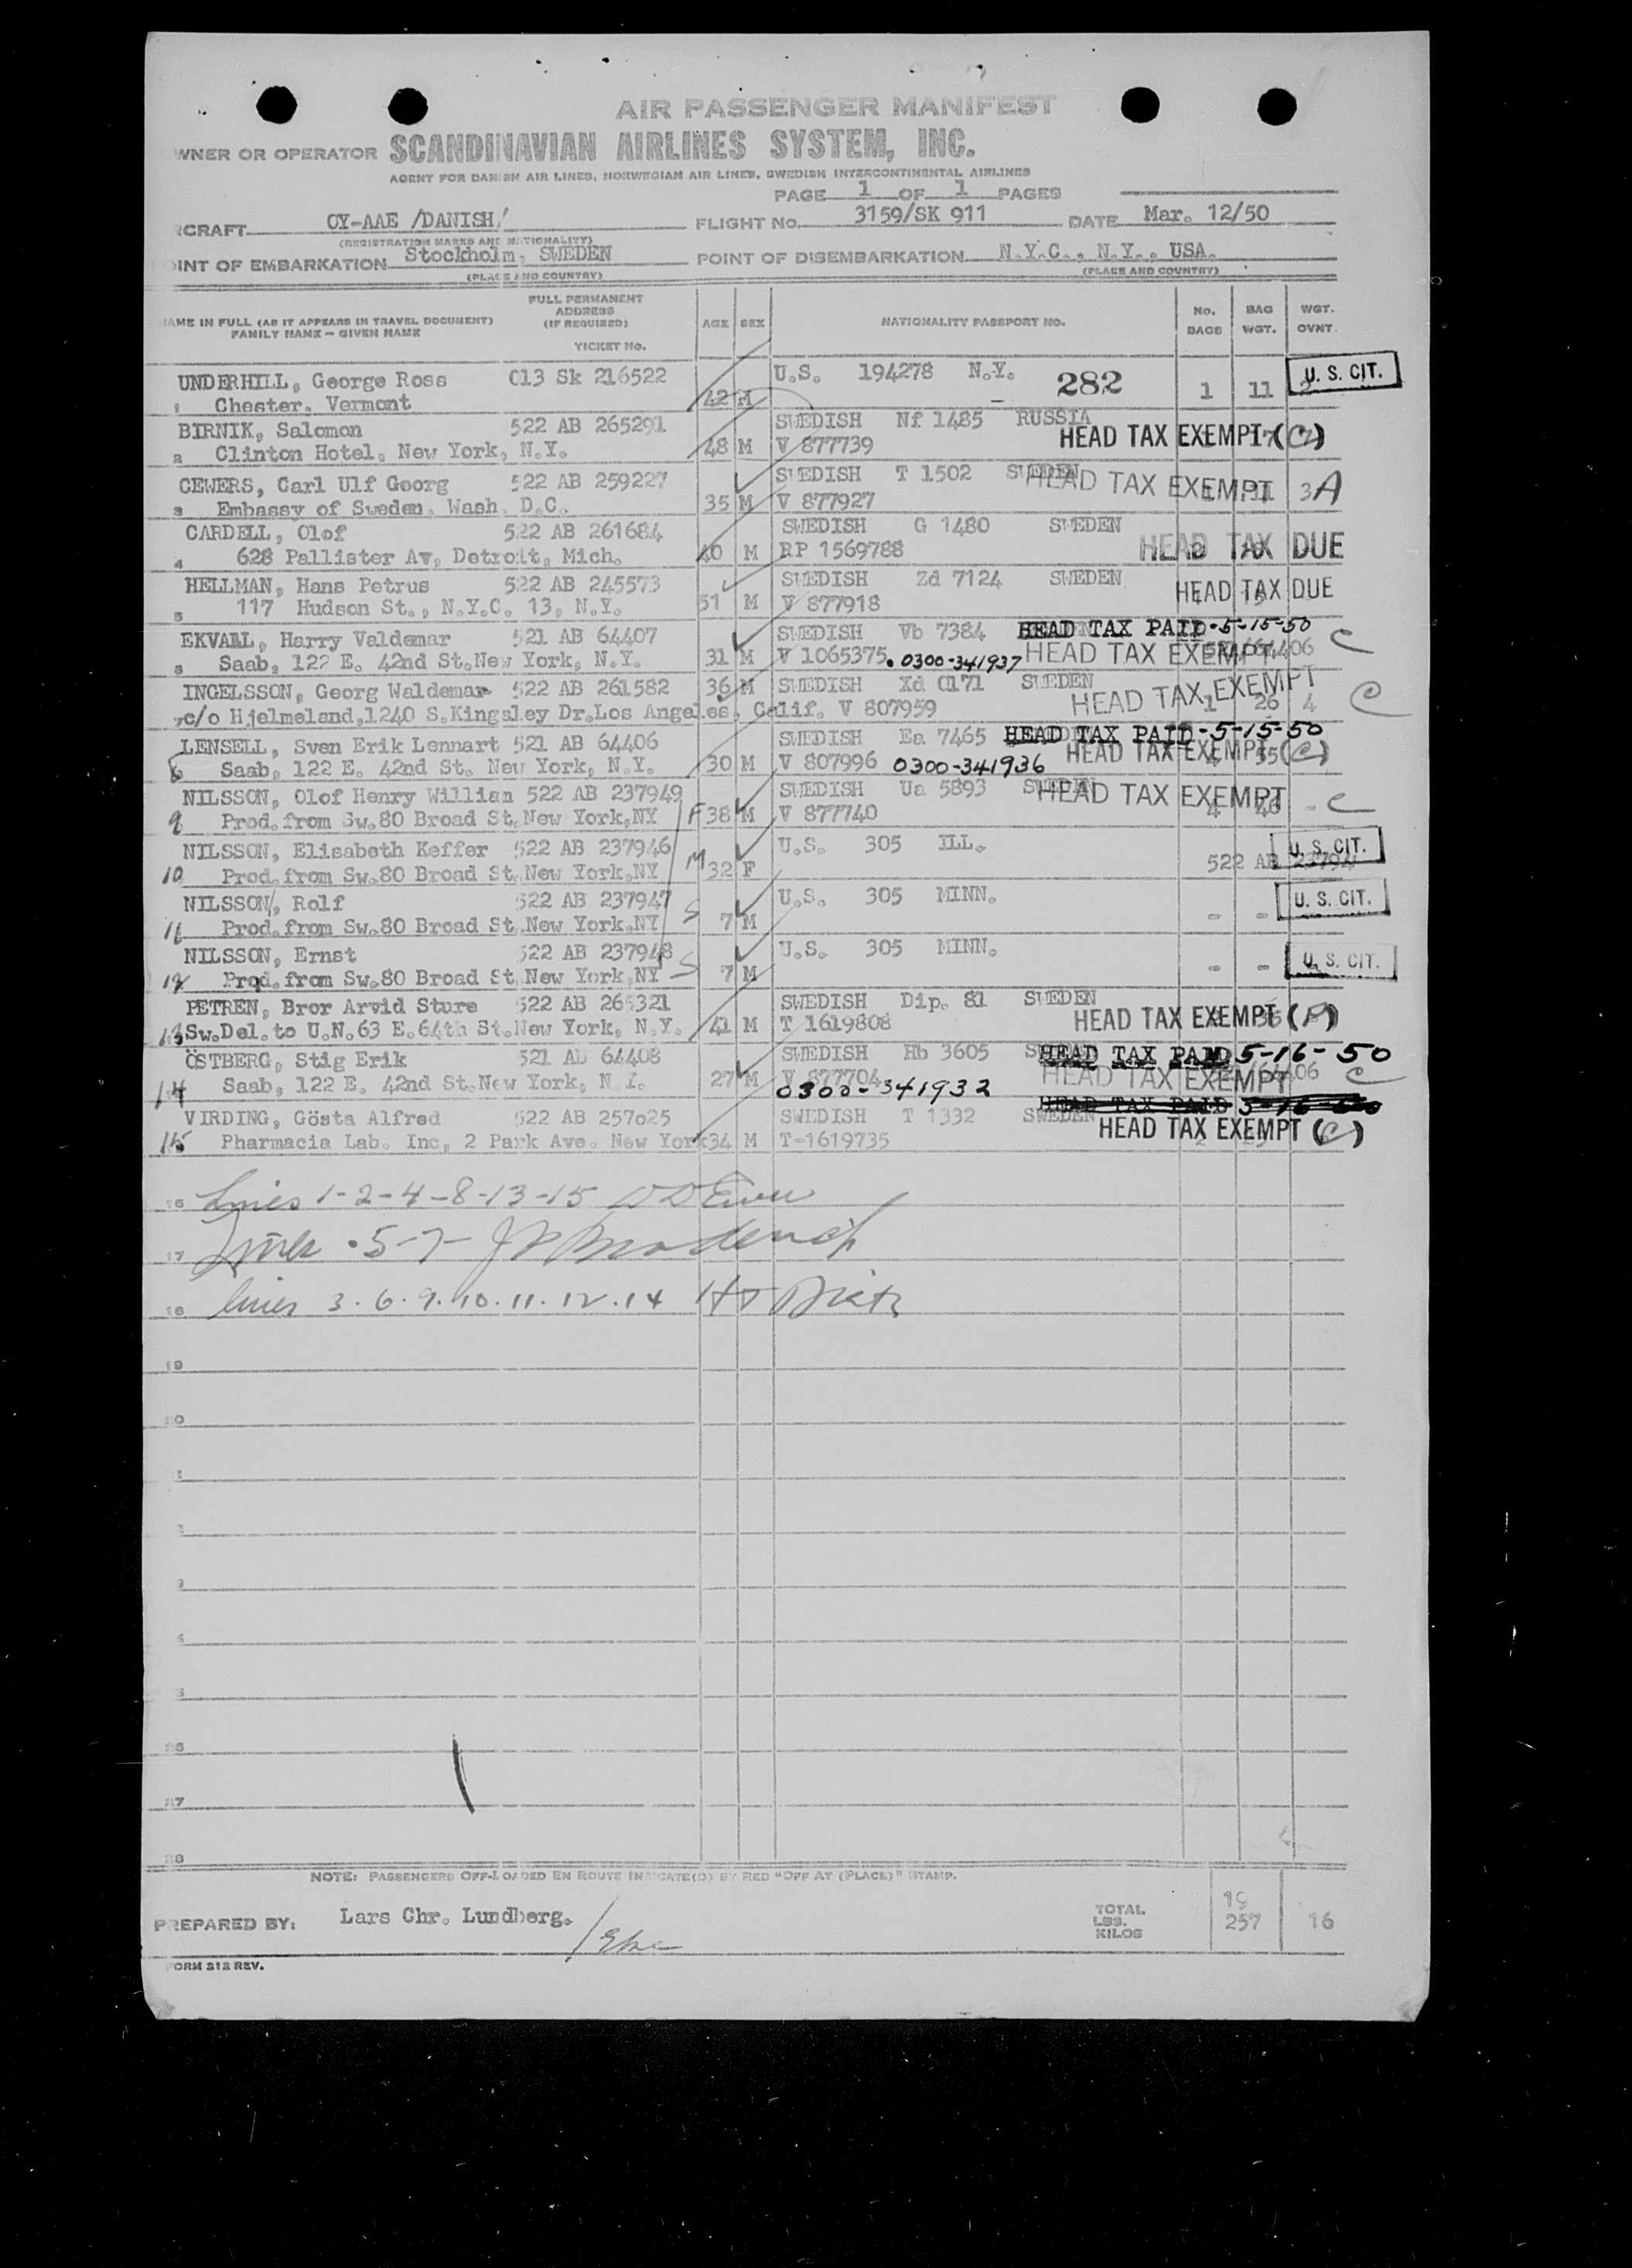 AIR PASSENGER MANIFEST
WNER OR OPERATOR SCANDINAVIAN AIRLINES SYSTEM, INC.
AGENT FOR DANISH AIR LINES, NORWEGIAN AIR LINES, SWEDISH INTERCONTINENTAL AIRLINES
PAGE 1 OF 1 PAGES
RCRAFT OY-AAE /DANISH/ FLIGHT No. 3159/SK 911 DATE Mar. 12/50
(REGISTRATION MARKS AND NATIONALITY)
OINT OF EMBARKATION Stockholm, SWEDEN POINT OF DISEMBARKATION N.Y.C., N.Y., USA.
(PLACE AND COUNTRY) (PLACE AND COUNTRY)
NAME IN FULL (AS IT APPEARS IN TRAVEL DOCUMENT) FAMILY NAME - GIVEN NAME
FULL PERMANENT ADDRESS (IF REQUIRED) TICKET No.
AGE SEX NATIONALITY PASSPORT NO. No. BAGS BAG WGT. WGT. OVNT.
UNDERHILL, George Ross 013 Sk 216522 U.S. 194278 N.Y. 282 1 11 U. S. CIT.
1 Chester. Vermont 42 M
BIRNIK, Salomon 522 AB 265291 SWEDISH Nf 1485 RUSSIA
2 Clinton Hotel, New York, N.Y. 48 M V 877739 HEAD TAX EXEMPT (C)
CEWERS, Carl Ulf Georg 522 AB 259227 SWEDISH T 1502 SWEDEN HEAD TAX EXEMPT 3A
3 Embassy of Sweden, Wash, D.C. 35 M V 877927
CARDELL, Olof 522 AB 261684 SWEDISH G 1480 SWEDEN
4 628 Pallister Av, Detroit, Mich. 40 M RP 1569788 HEAD TAX DUE
HELLMAN, Hans Petrus 522 AB 245573 SWEDISH Zd 7124 SWEDEN HEAD TAX DUE
5 117 Hudson St., N.Y.C. 13, N.Y. 51 M V 877918
EKVALL, Harry Valdemar 521 AB 64407 SWEDISH Vb 7384 HEAD TAX PAID-5-15-50
6 Saab, 122 E. 42nd St.New York, N.Y. 31 M V 1065375. 0300-341937 HEAD TAX EXEMPT C
INGELSSON, Georg Waldemar 522 AB 261582 36 M SWEDISH Xd 0171 SWEDEN HEAD TAX EXEMPT
7 c/o Hjelmeland,1240 S.Kingsley Dr.Los Angeles, Calif. V 807959 1 26 4 C
LENSELL, Sven Erik Lennart 521 AB 64406 SWEDISH Ea 7465 HEAD TAX PAID-5-15-50
8 Saab, 122 E. 42nd St. New York, N.Y. 30 M V 807996 0300-341936 HEAD TAX EXEMPT (C)
NILSSON, Olof Henry Willian 522 AB 237949 SWEDISH Ua 5893 SWEDEN HEAD TAX EXEMPT
9 Prod.from Sw.80 Broad St,New York,NY F 38 M V 877740 4 46 - C
NILSSON, Elisabeth Keffer 522 AB 237946 U.S. 305 ILL. U. S. CIT.
10 Prod.from Sw.80 Broad St,New York,NY M 32 F 522 AB
NILSSON, Rolf 522 AB 237947 U.S. 305 MINN. U. S. CIT.
11 Prod.from Sw.80 Broad St,New York,NY S 7 M - -
NILSSON, Ernst 522 AB 237948 U.S. 305 MINN. U. S. CIT.
12 Prod.from Sw.80 Broad St,New York,NY S 7 M - -
PETREN, Bror Arvid Sture 522 AB 265321 SWEDISH Dip. 81 SWEDEN
13 Sw.Del.to U.N.63 E.64th St.New York, N.Y. 41 M T 1619808 HEAD TAX EXEMPT
ÖSTBERG, Stig Erik 521 AB 64408 SWEDISH Hb 3605 HEAD TAX PAID 5-16-50
14 Saab, 122 E. 42nd St.New York, N.Y. 27 M V 877704 HEAD TAX EXEMPT C
0300-341932
VIRDING, Gösta Alfred 522 AB 257025 SWEDISH T 1332 SWEDEN HEAD TAX PAID
15 Pharmacia Lab. Inc, 2 Park Ave. New York 34 M T-1619735 HEAD TAX EXEMPT (C)
16 Lines 1-2-4-8-13-15
17 Lines 5-7
18 lines 3.6.9.10.11.12.14
19
NOTE: PASSENGERS OFF-LOADED EN ROUTE INDICATE(D) BY RED "OFF AT (PLACE)" STAMP.
PREPARED BY: Lars Chr. Lundberg.
TOTAL LBS. KILOS 257 16
FORM 312 REV.